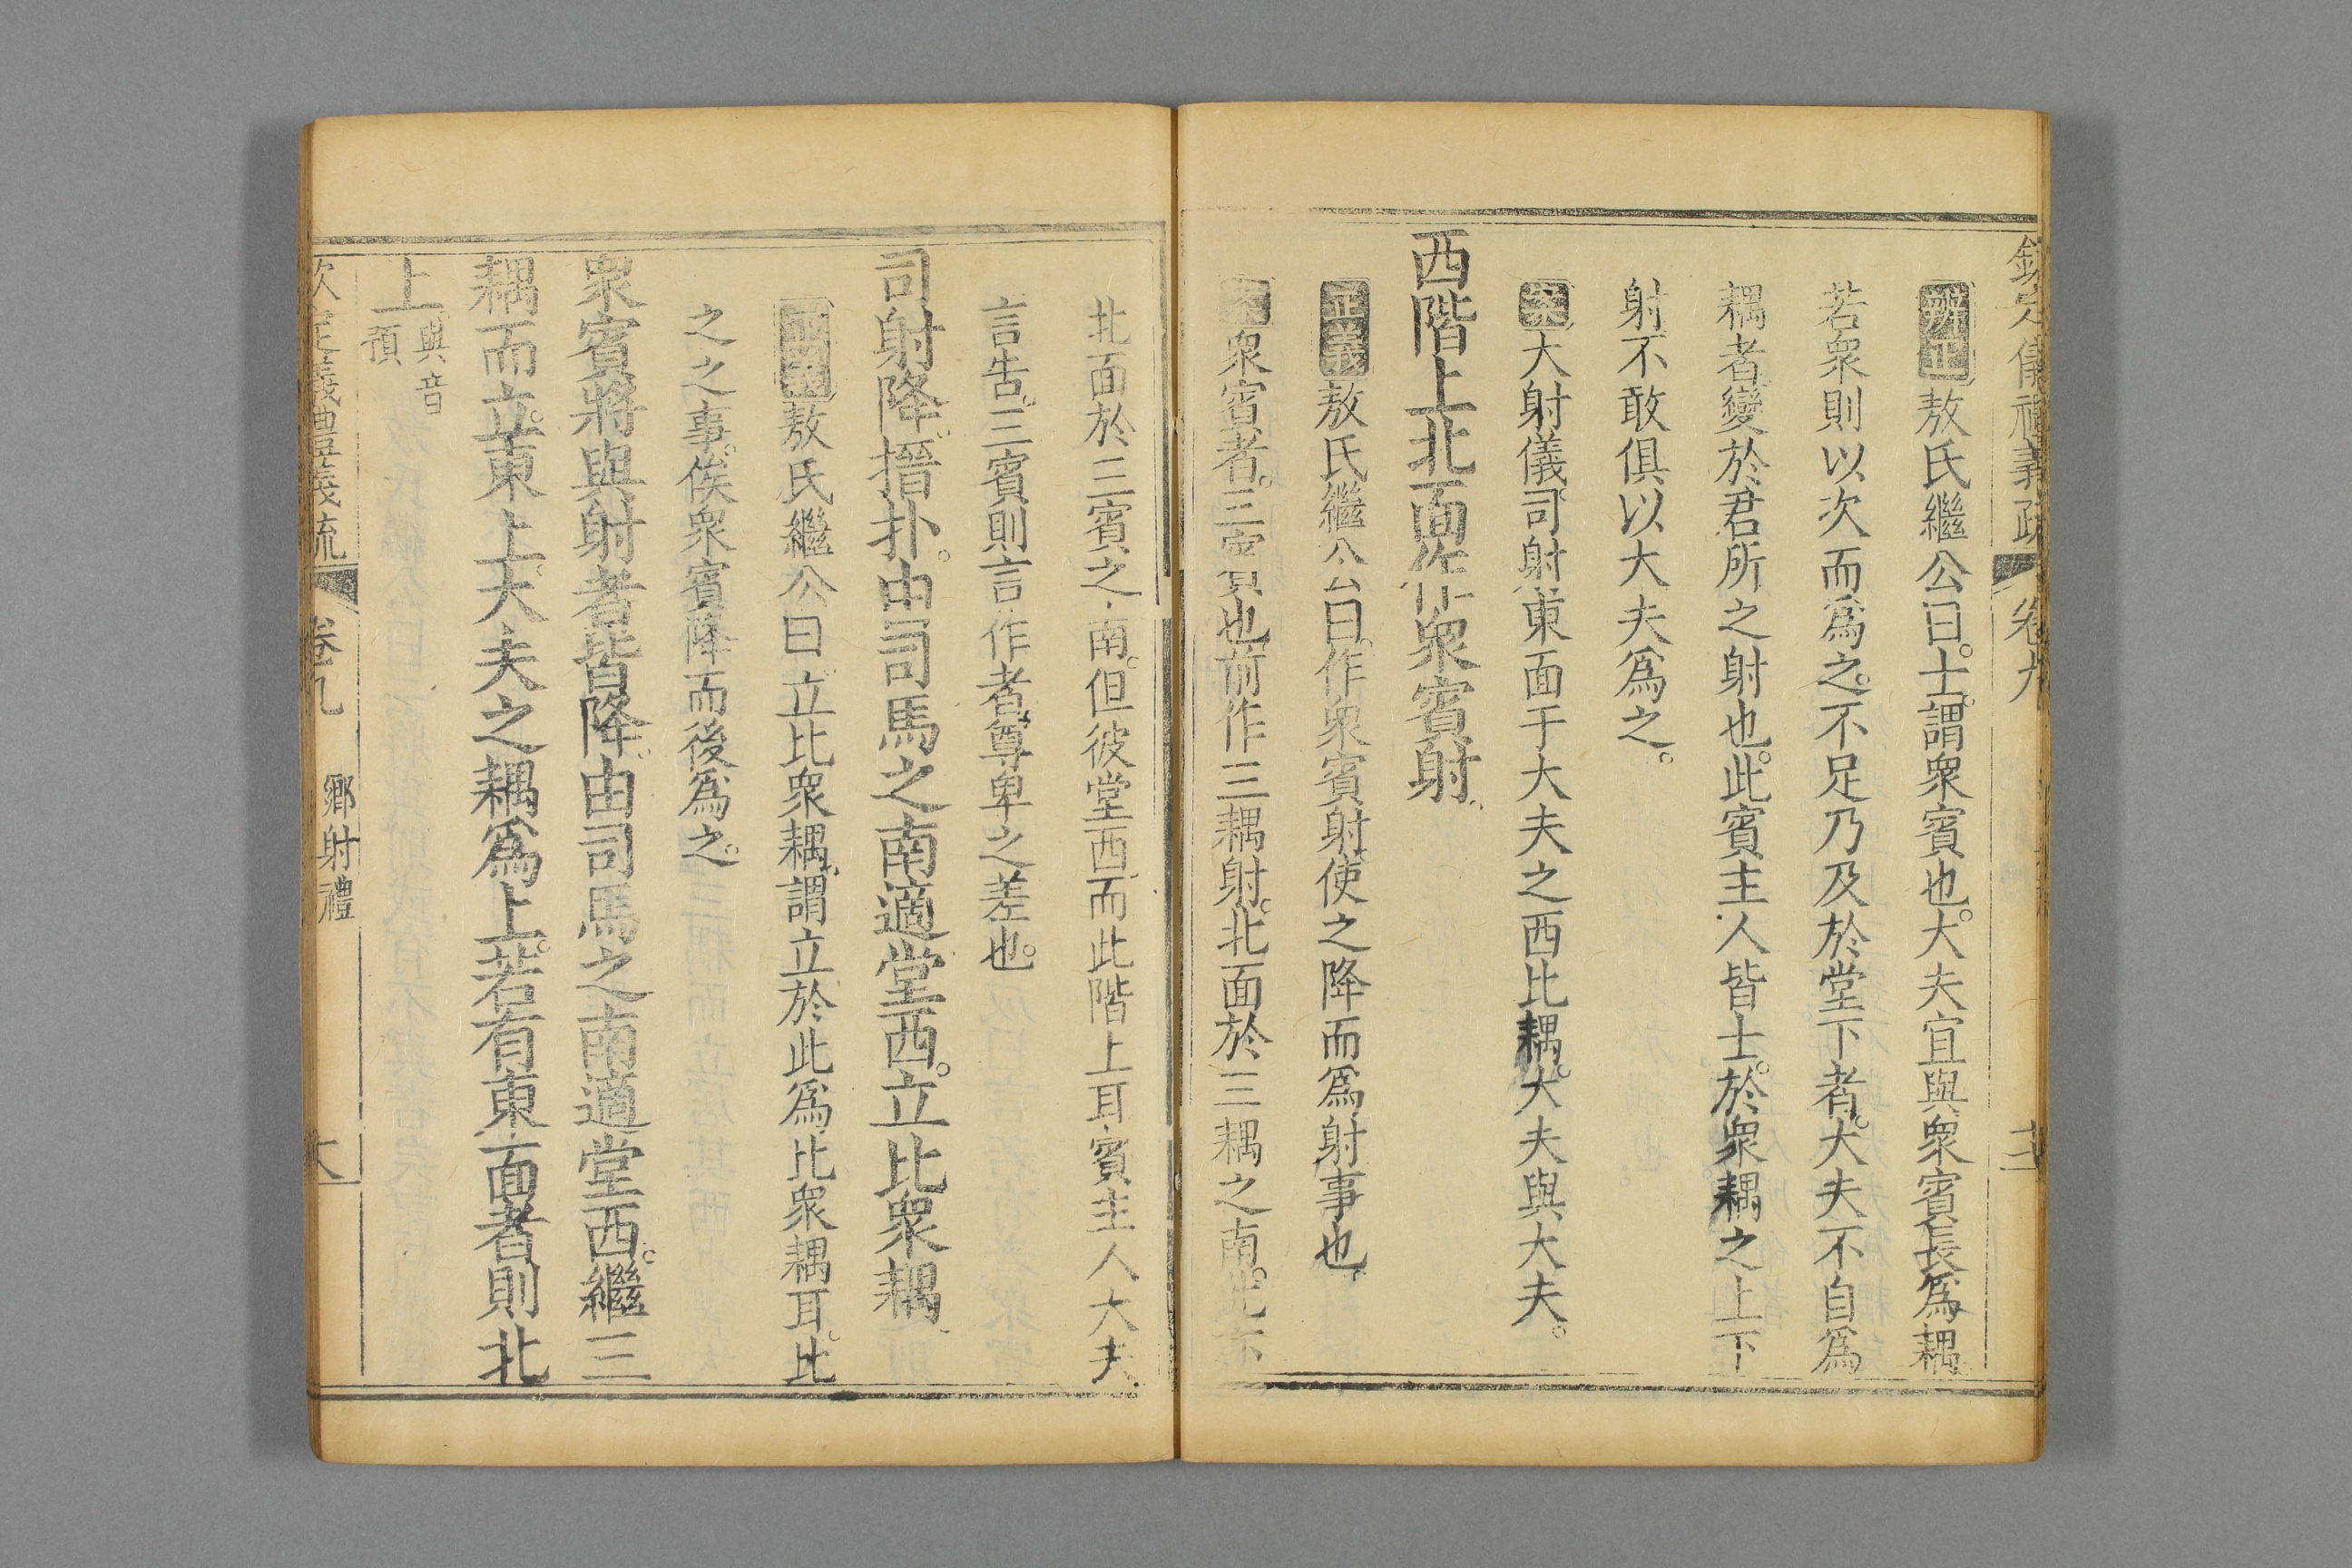 欽定儀禮義疏 卷九
辨正敖氏繼公曰。士。謂衆賓也。大夫宜與衆賓長爲耦。
若衆則以次而爲之。不足乃及於堂下者。大夫不自爲
耦者變於君所之射也。此賓主人皆士。於衆耦之上下
射不敢俱以大夫爲之。
案大射儀。司射東面于大夫之西比耦。大夫與大夫。
西階上北面作衆賓射。
正義敖氏繼公曰。作衆賓射使之降而爲射事也。
案衆賓者。三賓也。前作三耦射。北面於三耦之南。此亦
北面於三賓之南。但彼堂西。而此階上耳賓主人大夫
言告。三賓則言作者。尊卑之差也。
司射降。搢扑。由司馬之南適堂西。立比衆耦。
正義敖氏繼公曰立比衆耦。謂立於此爲比衆耦耳。比
之之事。俟衆賓降而後爲之。
衆賓將與射者皆降。由司馬之南適堂西。繼三
耦而立。東上。大夫之耦爲上。若有東面者則北
上與音預
欽定儀禮義疏 卷九 鄉射禮